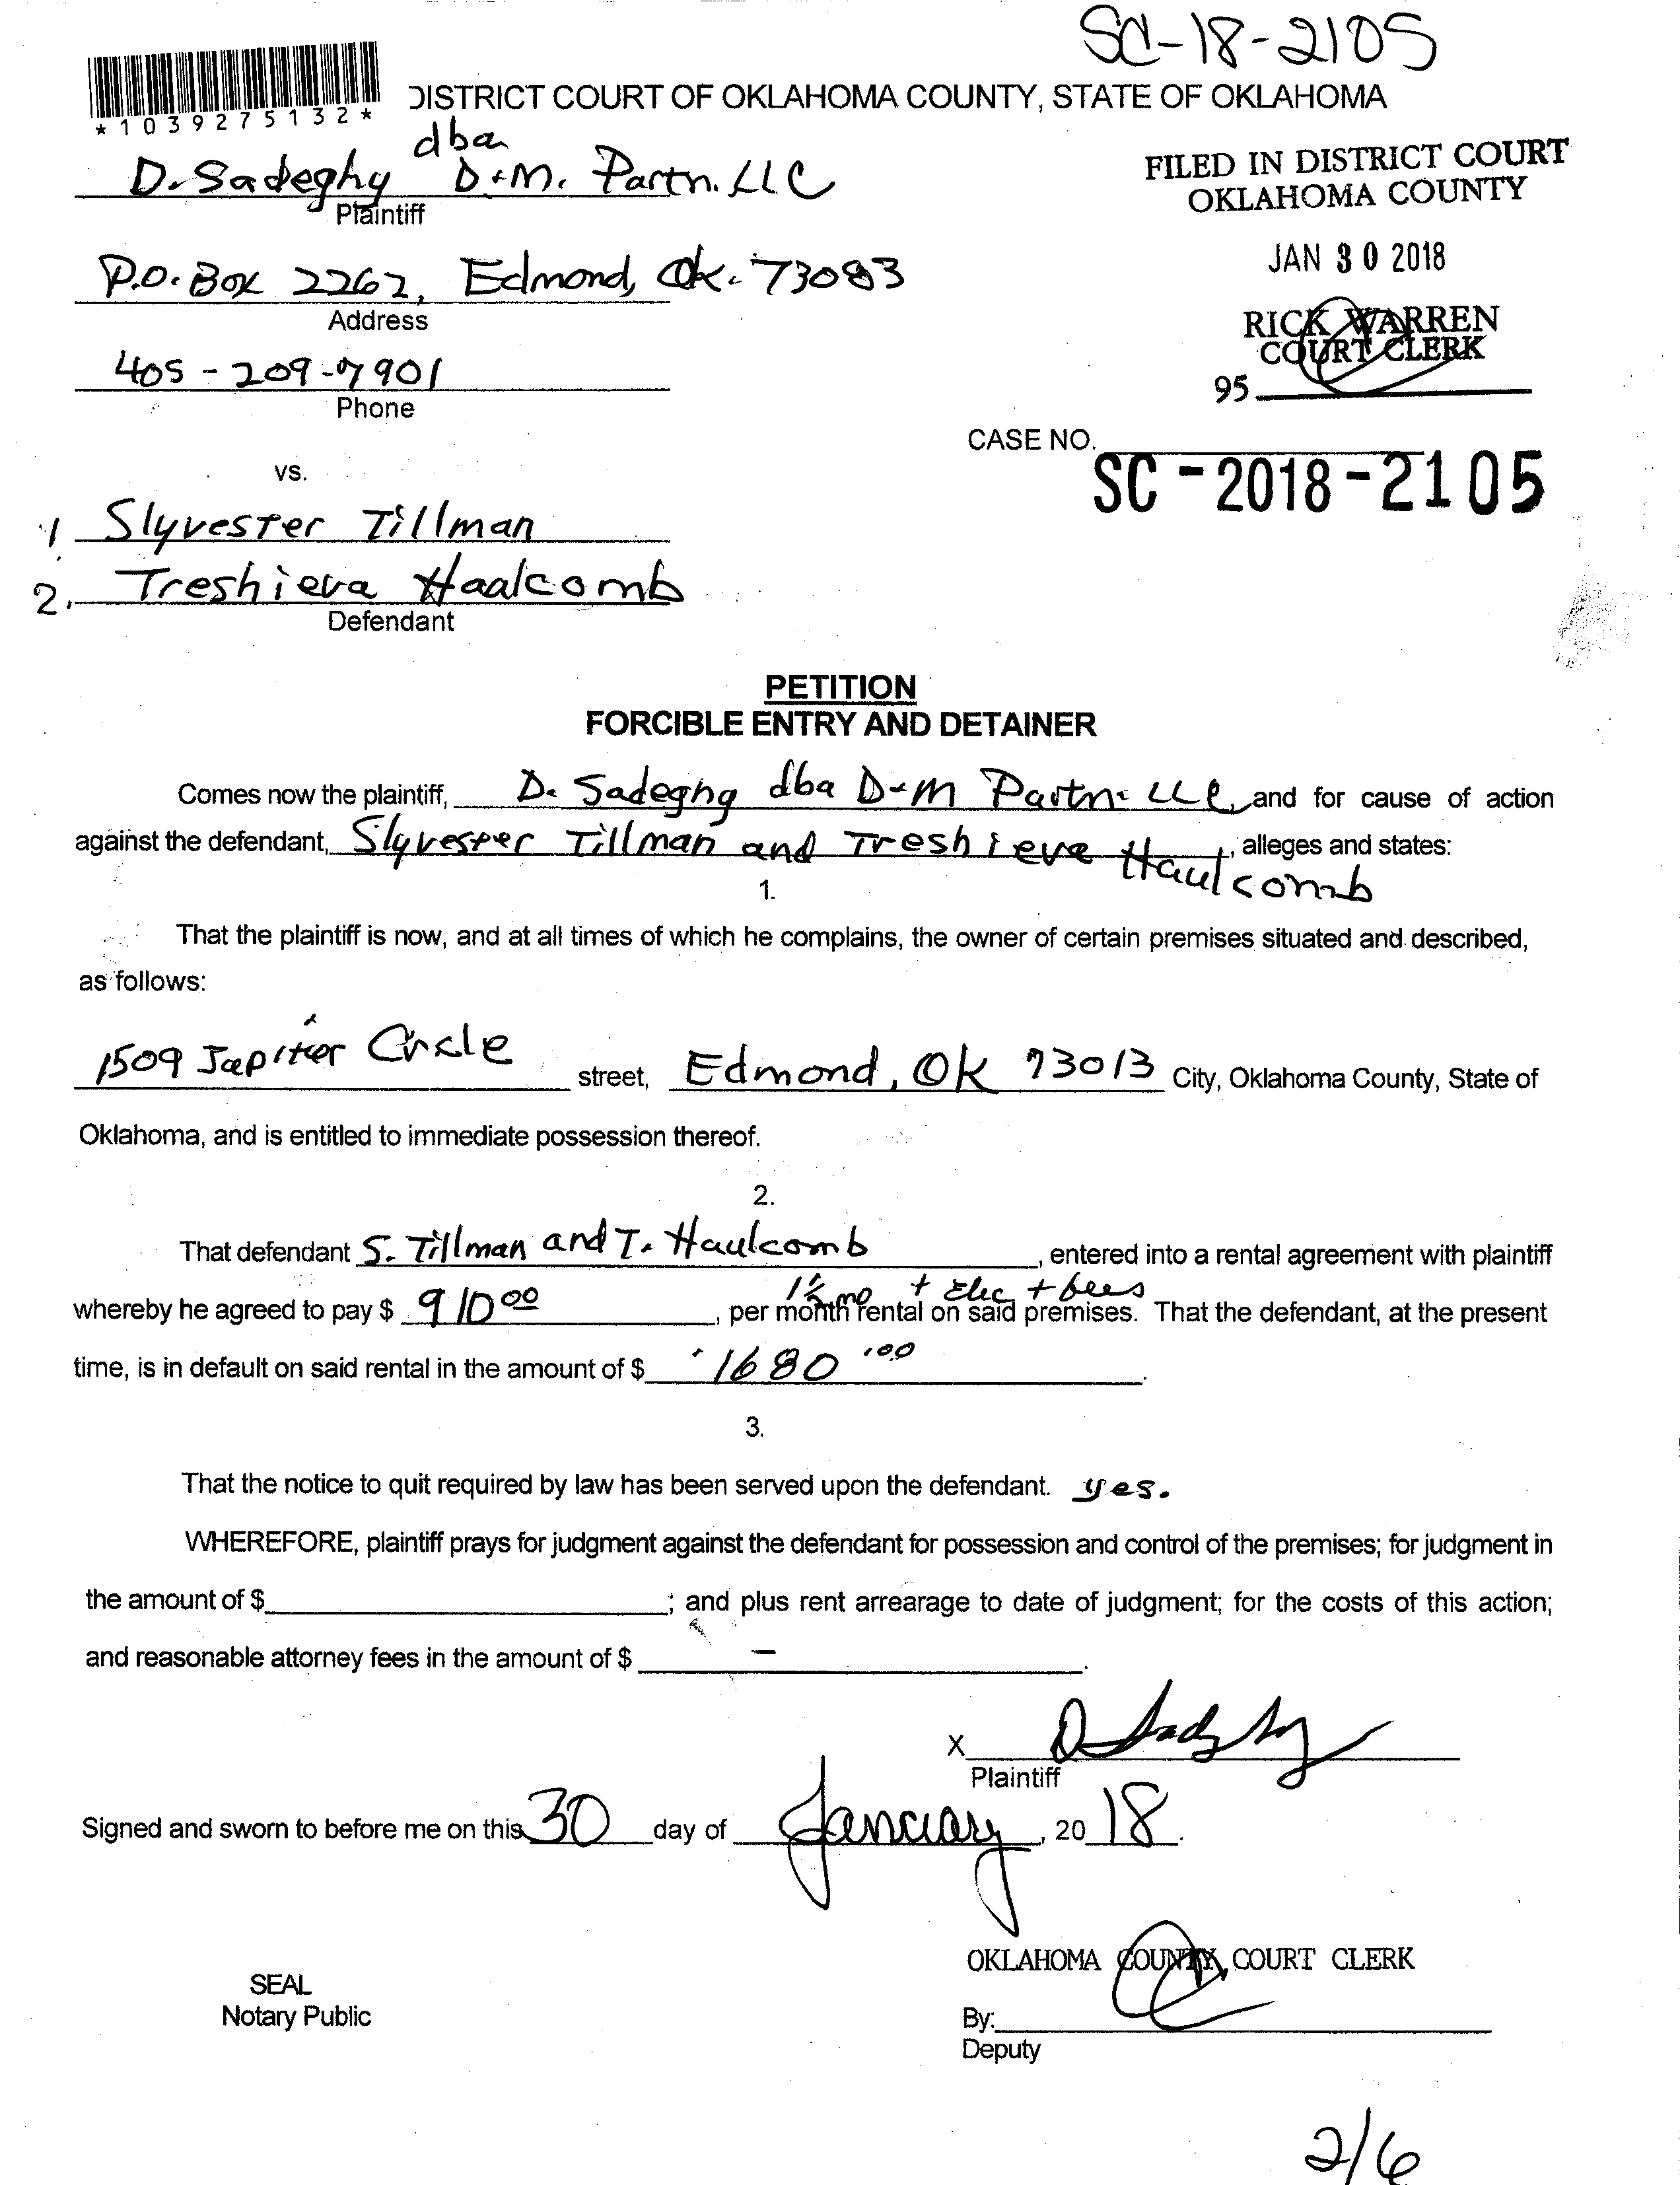 SC-18-2105
*1039275132*
DISTRICT COURT OF OKLAHOMA COUNTY, STATE OF OKLAHOMA
D. Sadeghy dba D+M. Partn. LLC
Plaintiff
FILED IN DISTRICT COURT
OKLAHOMA COUNTY
P.O. Box 2262, Edmond, Ok. 73083
Address
JAN 30 2018
RICK WARREN
COURT CLERK
405-209-7901
Phone
95
CASE NO.
SC-2018-2105
vs.
1 Slyvester Tillman
2. Treshieva Haalcomb
Defendant
PETITION
FORCIBLE ENTRY AND DETAINER
Comes now the plaintiff, D. Sadeghy dba D-M Partn. LLC, and for cause of action
against the defendant, Slyvester Tillman and Treshieva Haulcomb, alleges and states:
1.
That the plaintiff is now, and at all times of which he complains, the owner of certain premises situated and described,
as follows:
1509 Jupiter Circle street, Edmond, Ok 73013 City, Oklahoma County, State of
Oklahoma, and is entitled to immediate possession thereof.
2.
That defendant S. Tillman and T. Haulcomb, entered into a rental agreement with plaintiff
1 1/2 mo + Elec + bees
whereby he agreed to pay $ 910 00, per month rental on said premises. That the defendant, at the present
time, is in default on said rental in the amount of $ 1680.00.
3.
That the notice to quit required by law has been served upon the defendant. yes.
WHEREFORE, plaintiff prays for judgment against the defendant for possession and control of the premises; for judgment in
the amount of $; and plus rent arrearage to date of judgment; for the costs of this action;
and reasonable attorney fees in the amount of $ –.
X D Sadeghy
Plaintiff
Signed and sworn to before me on this 30 day of January, 2018.
OKLAHOMA COUNTY COURT CLERK
SEAL
Notary Public
By:
Deputy
2/6